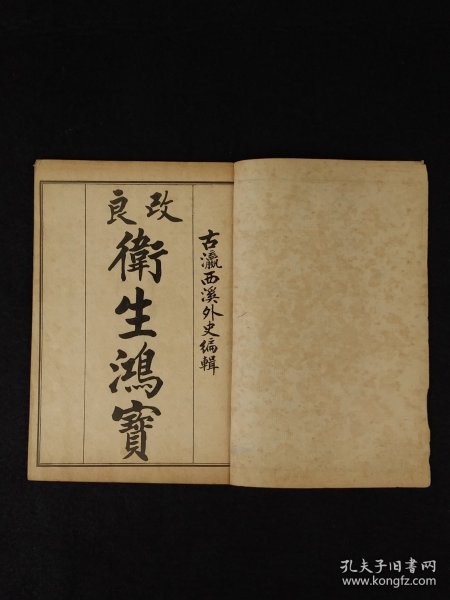 古瀛西溪外史編輯
改良
衛生鴻寶
孔夫子旧书网
www.kongfz.com